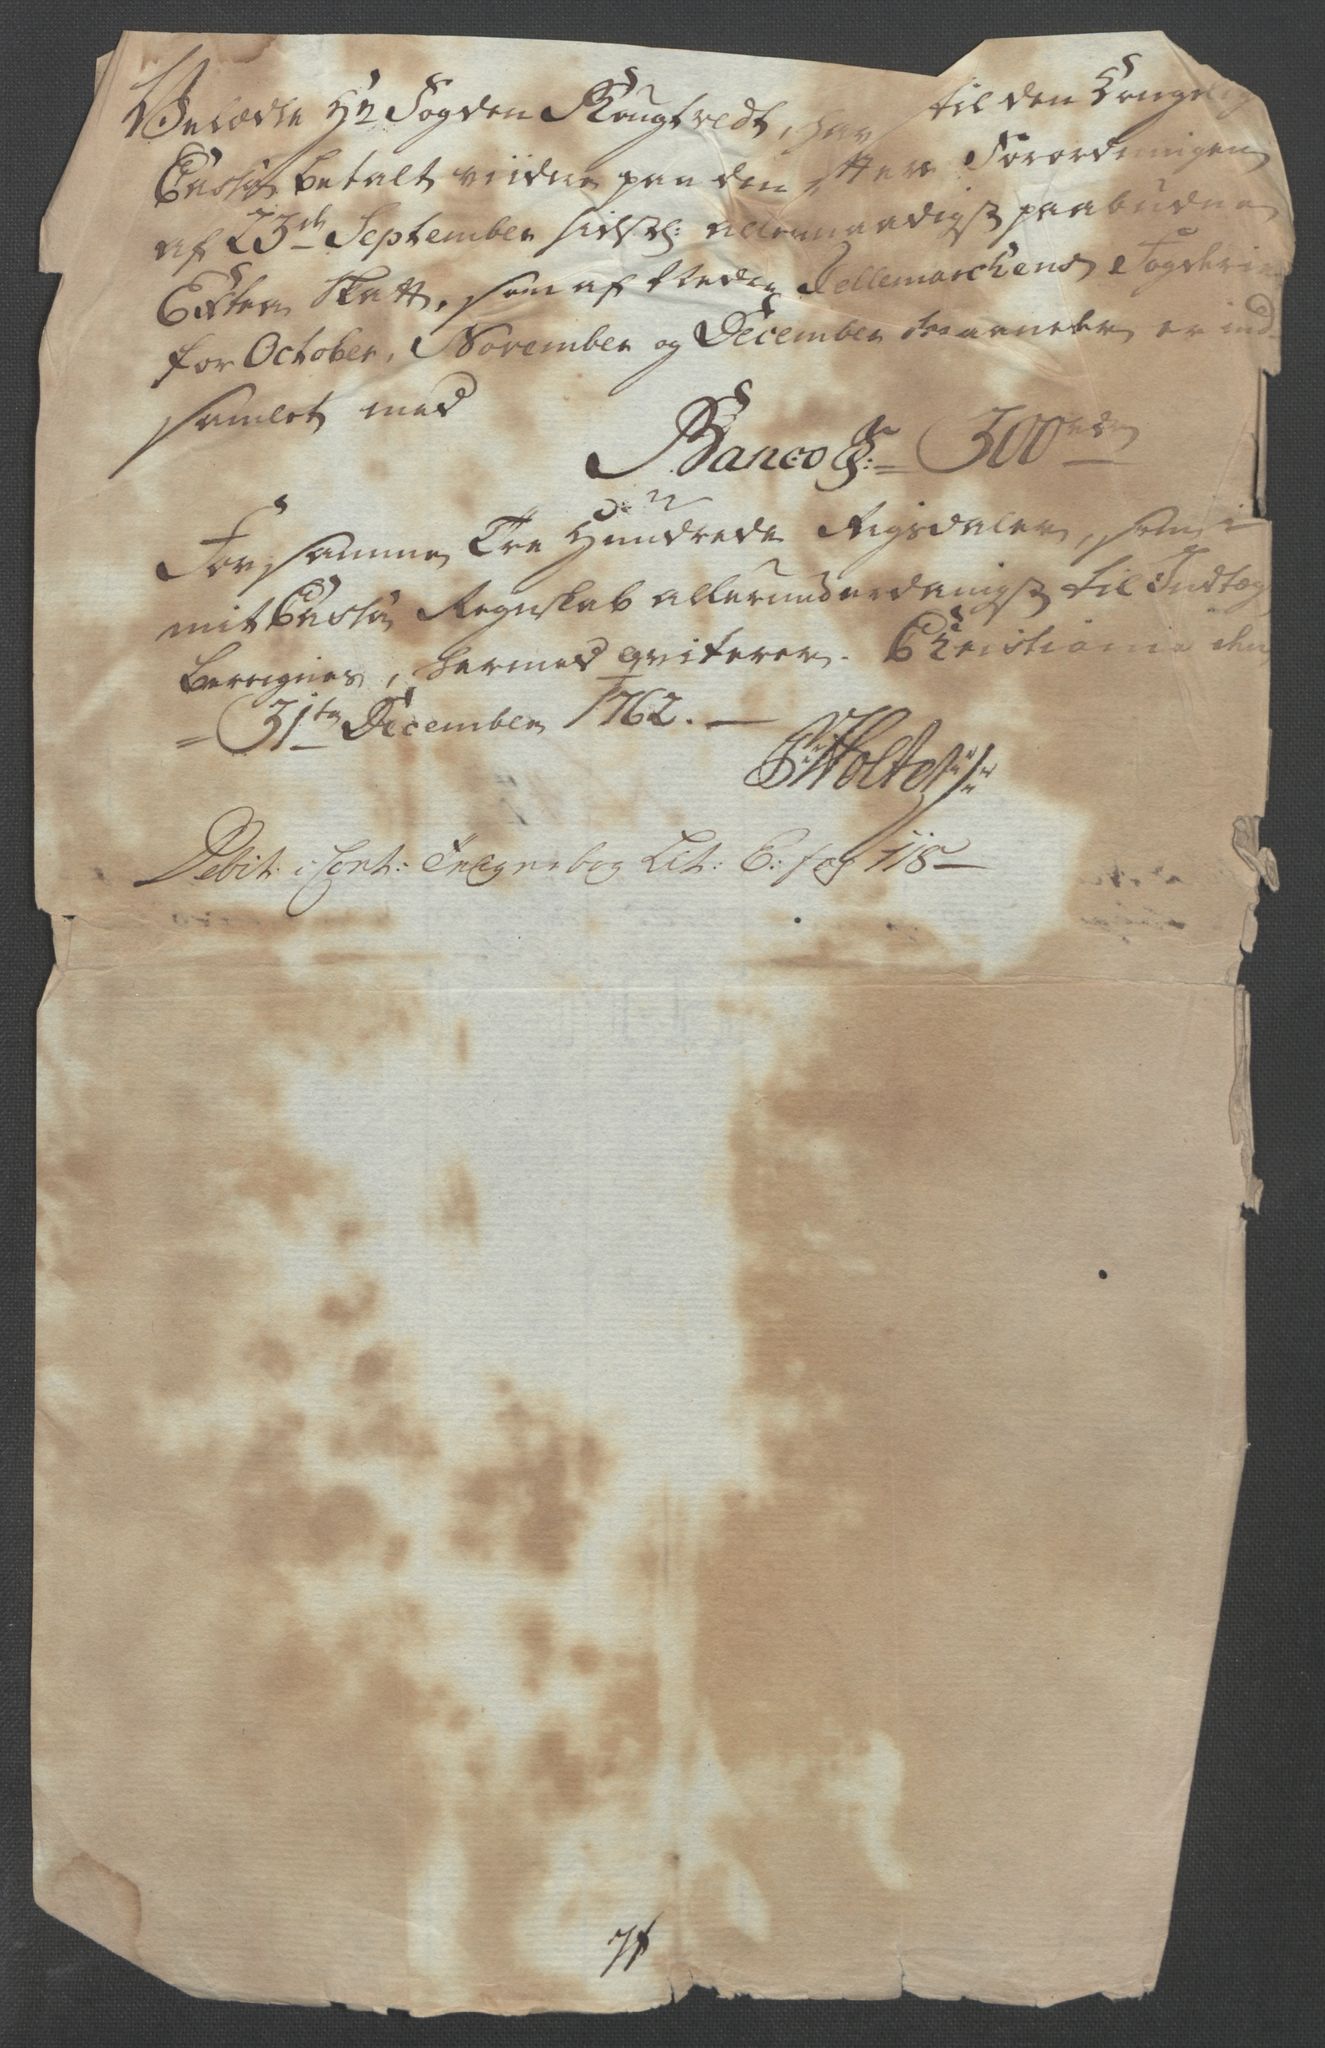 Velædle Hr Fogden Rougtvedt, har til den Kongelig
Cassa betalt viidere paa den efter Forordningen
af 23de September sidstl: allernaadigst paabudne
Extra Skatt, som af Neder Tellemarchens Fogderie
for October, November og December Maaneder er ind
samlet med
Banco Rd:= 300rdr
For samme Tre Hundrede Rigsdaler, som i
mit Cassa Regnskab allerunderdanigst til Indtægt
beregnes, hermed qviterer. Christiania den
= 31te December 1762. —
P: Holte
Debit: i Cont: Extra bog Lit: C: fol 118 —
71